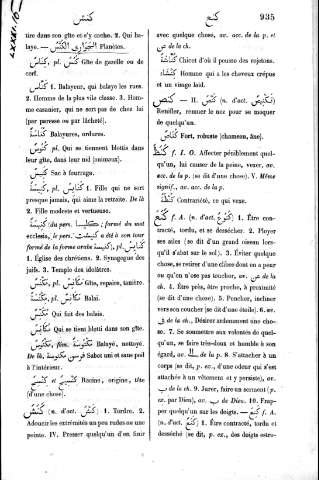 كنس
كنع
935
tire dans son gîte et s'y cache. 2. Qui ba-
laye. — الجَوَارِي الكُنَّسُ Planètes.
كِنَاسٌ, pl. كُنُسٌ Gîte de gazelle ou de
cerf.
كَنَّاسٌ 1. Balayeur, qui balaye les rues.
2. Homme de la plus vile classe. 3. Hom-
me casanier, qui ne sort pas de chez lui
(par paresse ou par lâcheté).
كُنَاسَةٌ Balayures, ordures.
كُنُوسٌ pl. Qui se tiennent blottis dans
leur gîte, dans leur nid (animaux).
كَنِيسٌ Sac à fourrage.
كَنِيسَةٌ, pl. كَنَائِسُ 1. Fille qui ne sort
presque jamais, qui aime la retraite. De là
2. Fille modeste et vertueuse.
كَنِيسَةٌ (du pers. ; formé du mot
ecclesia, le pers. a dû à son tour
formé de la forme arabe كنيسة), pl. كَنَائِسُ
1. Église des chrétiens. 2. Synagogue des
juifs. 3. Temple des idolâtres.
مَكْنِسٌ, pl. مَكَانِسُ Gîte, repaire, tanière.
مِكْنَسَةٌ, pl. مَكَانِسُ Balai.
مُكَنِّسٌ Qui fait des balais.
Qui se tient blotti dans son gîte.
مَكْنُوسٌ, fém. مَكْنُوسَةٌ Balayé, nettoyé.
De là, فرسن مكنوسة Sabot uni et sans poil
à l'intérieur.
Racine, origine, tête
(d'une chose).
كَنَشَ (n. d'act. كَنْشٌ) 1. Tordre. 2.
Adoucir les extrémités un peu rudes ou une
pointe. IV. Presser quelqu'un d'en finir
avec quelque chose, ac. de la p. et
de la ch.
Chicot d'où il pousse des rejetons.
كَنْشَاءُ Homme qui a les cheveux crépus
et un visage laid.
كنص — II. كَنَّصَ (n. d'act. تَكْنِيصٌ)
Renifler, remuer le nez pour se moquer
de quelqu'un.
كُنَاصٌ Fort, robuste (chameau, âne).
كَنَظَ f. I. O. Affecter péniblement quel-
qu'un, lui causer de la peine, vexer, av.
acc. de la p. (se dit d'une chose). V. Même
signif., av. acc. de la p.
كَنْظَةٌ Contrariété, ce qui vexe.
كَنَعَ f. A. (n. d'act. كُنُوعٌ) 1. Être con-
tracté, tordu, et se dessécher. 2. Ployer
ses ailes (se dit d'un grand oiseau lors-
qu'il s'abat sur le sol). 3. Éviter quelque
chose, se retirer d'une chose dont on a peur
ou qu'on n'ose pas toucher, av. عن de la
ch. 4. Être près, être proche, à proximité
(se dit d'une chose). 5. Pencher, incliner
vers son coucher (se dit d'une étoile). 6. av.
في de la ch., Désirer ardemment une cho-
se. 7. Se soumettre aux volontés de quel-
qu'un, se faire très-doux et humble à son
égard, av. الى de la p. 8. S'attacher à un
corps (se dit, p. ex., d'une odeur qui s'est
attachée à un vêtement et y persiste), av.
ب de la ch. 9. Jurer, faire un serment (p.
ex. par Dieu), av. ب de Dieu. 10. Frap-
per quelqu'un sur les doigts. — كَنِعَ f. A.
(n. d'act. كَنَعٌ) 1. Être contracté, tordu et
desséché (se dit, p. ex., des doigts estro-